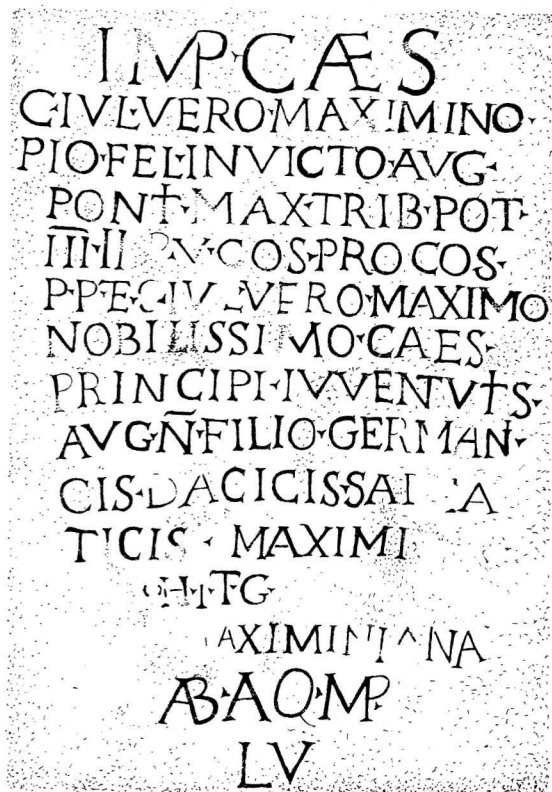 IMP·CAES
C·IVL·VERO·MAXIMINO·
PIO·FEL·INVICTO·AVG·
PONT·MAX·TRIB·POT·
III·II COS·PROCOS·
P·P·E· VERO·MAXIMO
NOBILISSIMO·CAES·
PRINCIPI·IVVENTVTIS·
AVG·N̄·FILIO·GERMAN·
CIS·DACICIS·SA
TICIS · MAXIMI
TG·
AXIMINIANA
AB·AQ·MP
LV